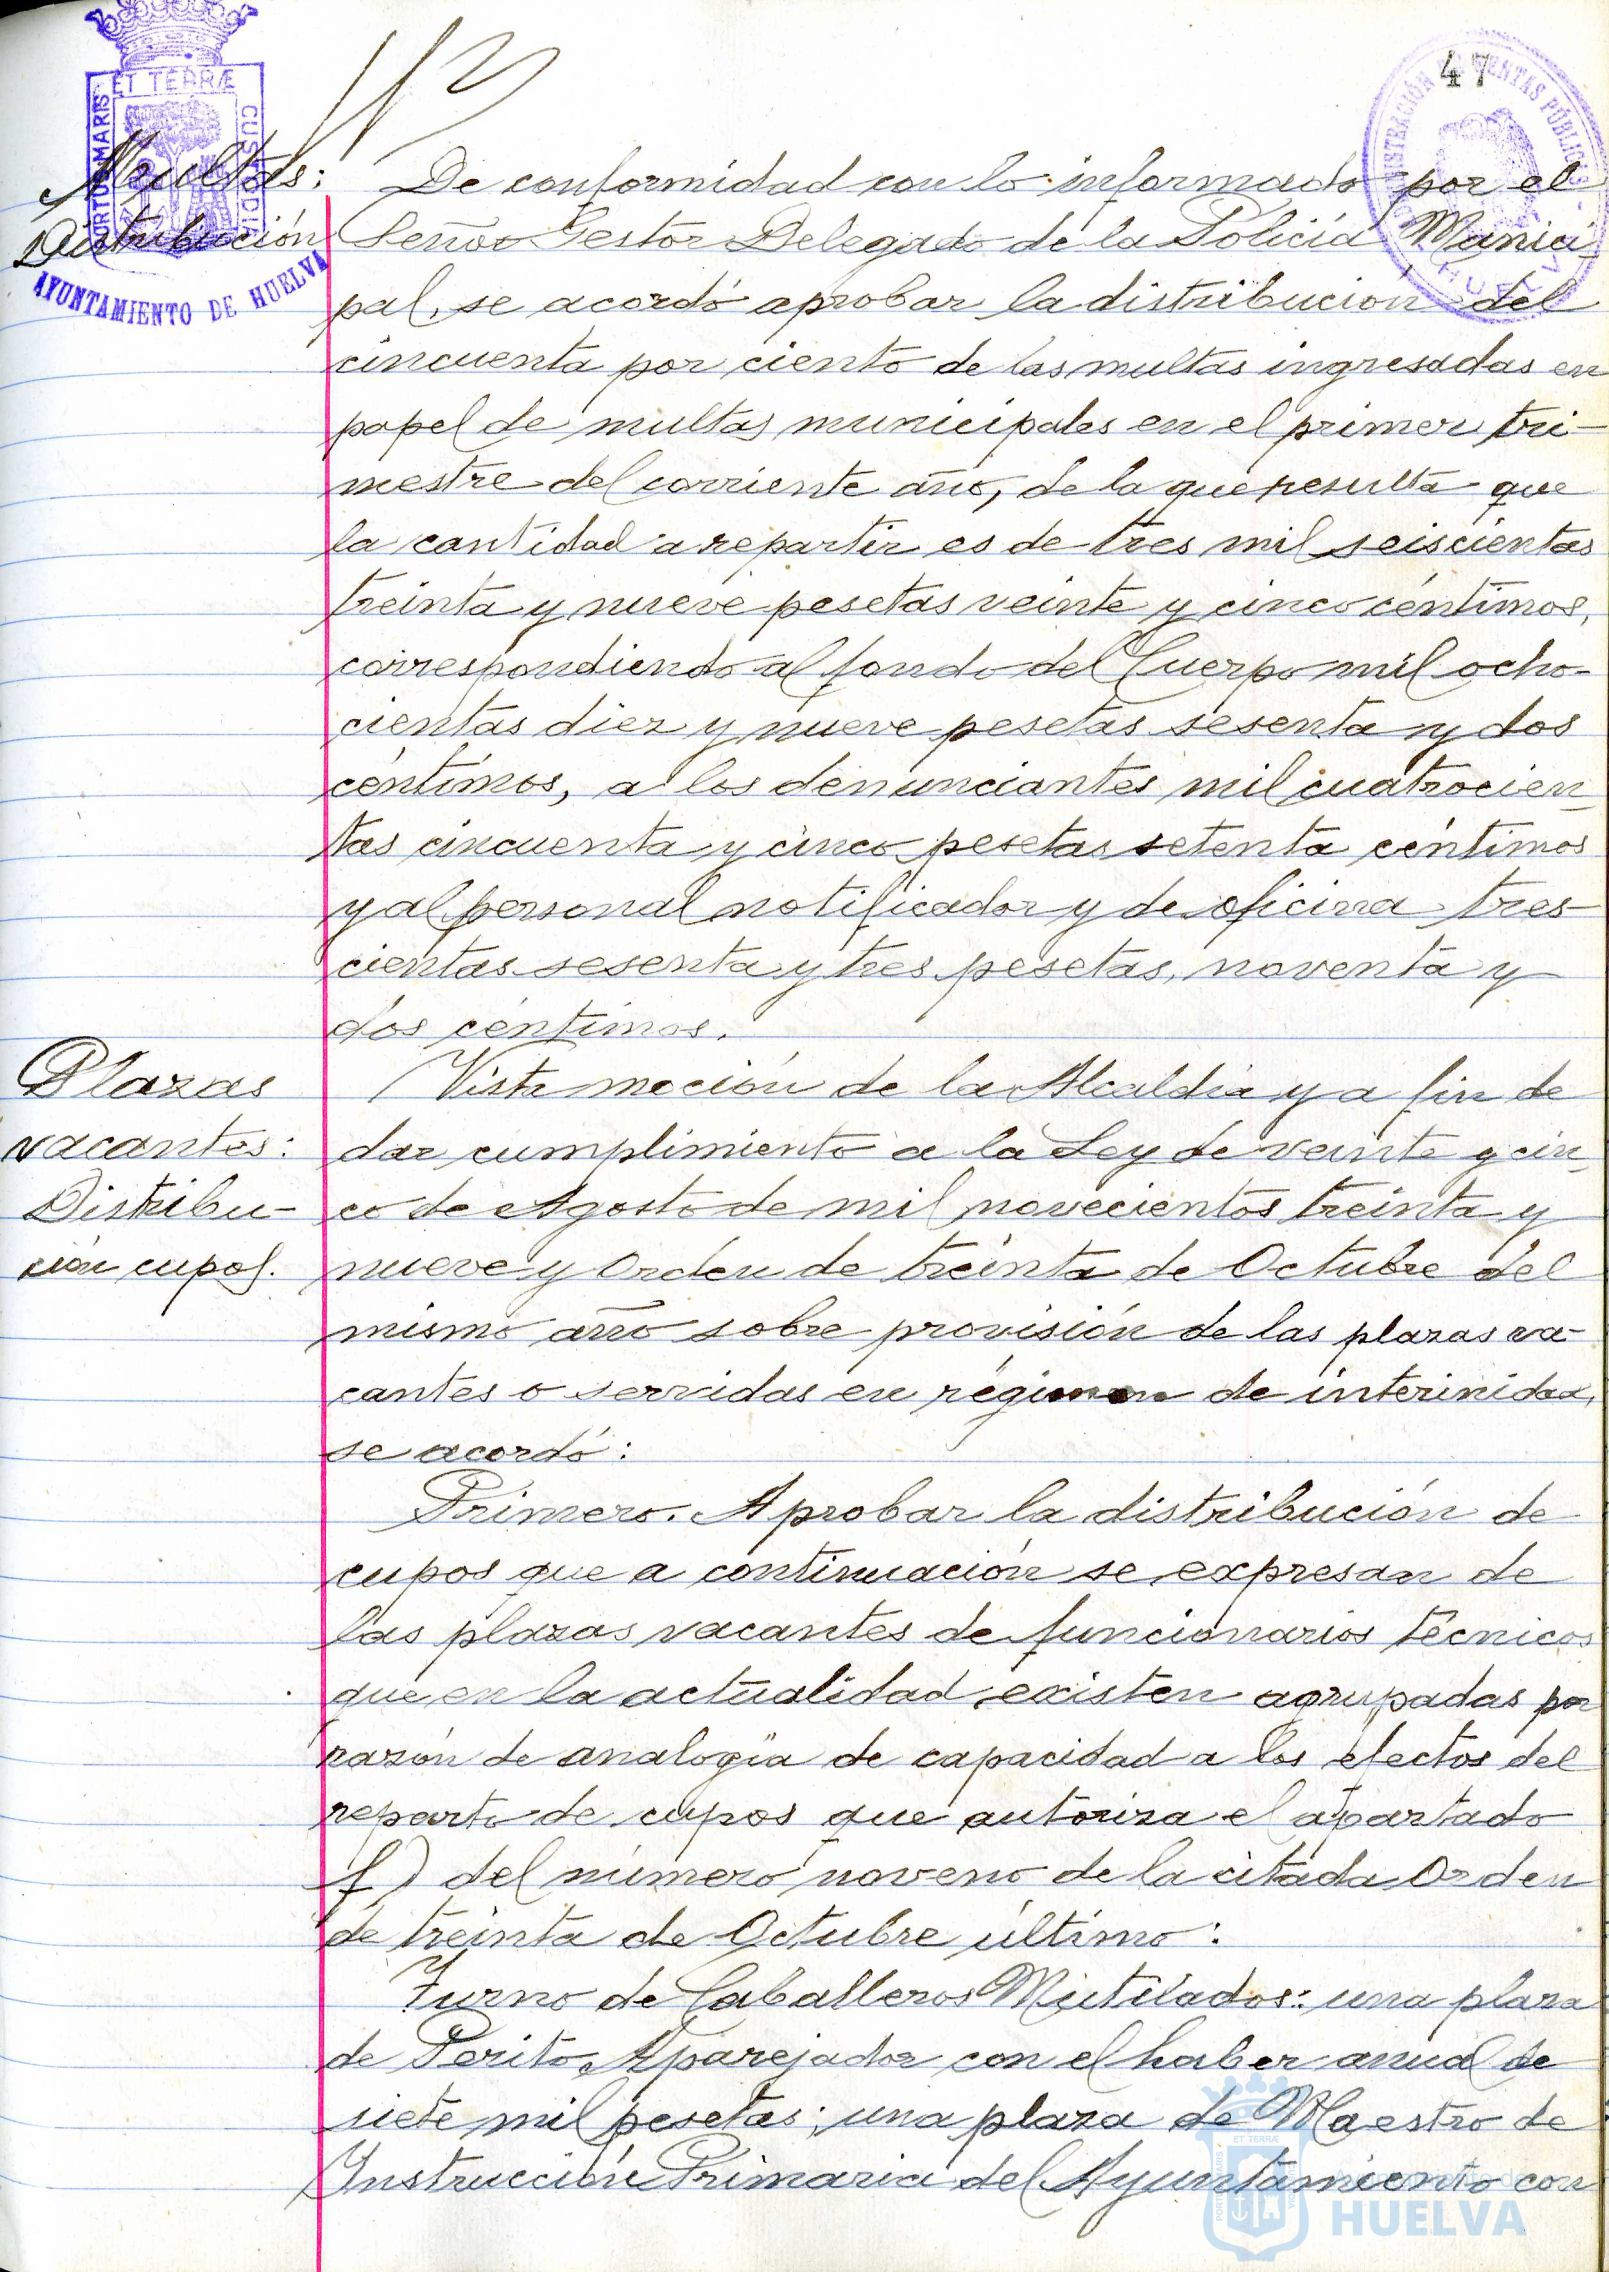 47
ET TERRÆ
PORTUS MARIS
CUSTODIA
AYUNTAMIENTO DE HUELVA
HUELVA
Multas:
Distribución
De conformidad con lo informado por el
Señor Gestor Delegado de la Policía Munici
pal, se acordó aprobar la distribucion del
cincuenta por ciento de las multas ingresadas en
papel de multas municipales en el primer tri-
mestre del corriente año, de la que resulta que
la cantidad a repartir es de tres mil seiscientas
treinta y nueve pesetas veinte y cinco céntimos,
correspondiendo al fondo del Cuerpo mil ocho-
cientas diez y nueve pesetas sesenta y dos
céntimos, a los denunciantes mil cuatrocien
tas cincuenta y cinco pesetas setenta céntimos
y al personal notificador y de oficina tres-
cientas sesenta y tres pesetas, noventa y
dos céntimos.
Plazas
vacantes:
Distribu-
ción cupos.
Vista moción de la Alcaldía y a fin de
dar cumplimiento a la Ley de veinte y cin
co de Agosto de mil novecientos treinta y
nueve y Orden de treinta de Octubre del
mismo año sobre provisión de las plazas va-
cantes o servidas en régimen de interinidad,
se acordó:
Primero. Aprobar la distribución de
cupos que a continuación se expresan de
las plazas vacantes de funcionarios técnicos
que en la actualidad existen agrupadas por
razón de analogía de capacidad a los efectos del
reparto de cupos que autoriza el apartado
f) del número noveno de la citada Orden
de treinta de Octubre último:
Turno de Caballeros Mutilados: una plaza
de Perito Aparejador con el haber anual de
siete mil pesetas; una plaza de Maestro de
Instrucción Primaria del Ayuntamiento con
HUELVA